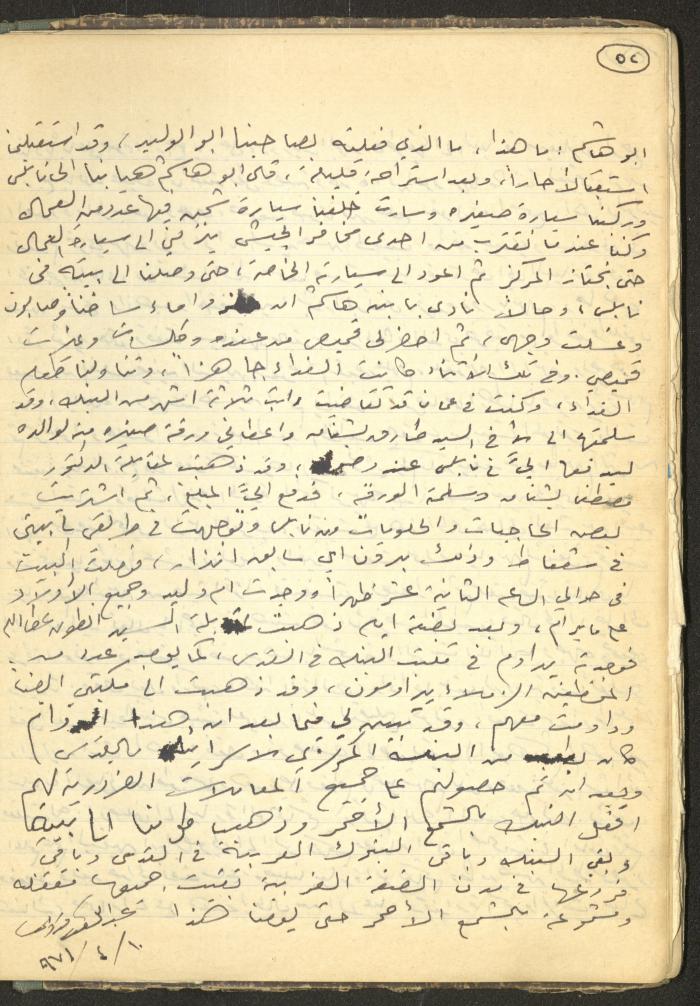 ٥٢
ابو هاشم، ما هذا، ما الذي فعلته بصاحبنا ابو الوليد، وقد استقبلنا
استقبالاً حاراً، وبعد استراحة قليلة، قال ابو هاشم هيا بنا الى نابلس
وركبنا سيارة صغيره وسارت خلفنا سيارة شحن فيها عدد من العمال
وكنا عندما نقترب من احدى مخافر الجيش ينزلني الى سيارة العمال
حتى نجتاز المركز ثم اعود الى سيارته الخاصة، حتى وصلنا الى بيته في
نابلس، وحالاً نادى يا بنت هاشم ان واماء ساخناً وصابون
وغسلت وجهي، ثم احضر لي قميص من عنده وغيرت
قميصي. وفي تلك الاثناء كانت الغداء جاهزاً، وتناولنا طعام
الغداء، وكنت في عمان قد تقاضيت راتب ثلاثة اشهر من البنك، وقد
سلمتها الى السيد طارق بشناق واعطاني ورقة صغيره منه لوالده
ليدفعها اليّ في نابلس عند، وقد ذهبت لمقابلة الدكتور
مصطفى بشناق وسلمته الورقة، فدفع اليّ المبلغ، ثم اشتريت
بعض الحاجيات والحلويات من نابلس وتوجهت في طريقي الى بيتي
في شعفاط وذلك بدون اي سابق انذار، فوصلت البيت
في حوالي الساعه الثانية عشر ظهراً ووجدت ام وليد وجميع الأولاد
على ما يرام، وبعد بضعة ايام ذهبت لمقابلة السيد انطون عطاالله
فوجدته يداوم في مكتب البنك في القدس، كما يوجد عدد من
الموظفين الزملاء يداومون، وقد ذهبت الى مكتبي ايضا
وداومت معهم، وقد تبين لي فيما بعد ان هذا الدوام
كان بطلب من البنك المركزي الاسرائيلي بالقدس
وبعد ان تم حصولهم على جميع المعاملات الضرورية لهم
اقفل البنك بالشمع الأحمر وذهب كل منا الى بيته
وبقي البنك وباقي البنوك العربية في القدس وباقي
فروعها في مدن الضفة الغربية بقيت جميعها مقفله
ومشموعة بالشمع الأحمر حتى يومنا هذا
١٠/٤/٩٧١